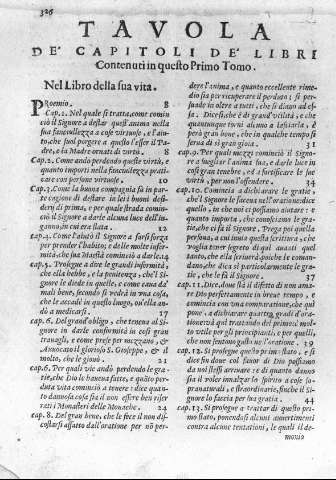 326
TAVOLA
DE' CAPITOLI DE' LIBRI
Contenuti in questo Primo Tomo.
Nel Libro della sua vita.
PRoemio. 8
Cap.1. Nel quale si tratta, come comin
ciò il Signore a destar quest'anima nella
sua fanciullezza a cose virtuose, e l'aiu-
to, che suol porgere a questo l'esser il Pa-
dre, e la Madre ornati di virtù. 8
Cap.2. Come andò perdendo queste virtù, e
quanto importi nella fanciullezza prati-
care con persone virtuose. 10
Cap.3. Come la buona compagnia fù in par-
te cagione di destare in lei i buoni desi-
derij di prima, e per quale strada comin-
ciò il Signore a darle alcuna luce dell'in-
ganno, in cui era stata. 12
Cap.4. Come l'aiutò il Signore a farsi forza
per prender l'habito; e delle molte infer-
mità, che sua Maestà cominciò a darle. 14
cap.5. Prosegue a dire le grandi infermità,
che ella hebbe, e la patienza, che'l Si-
gnore le diede in quelle, e come cava da'
mali beni, secondo si vedrà in una cosa,
che le accadè in questo luogo, ov'ella an-
dò a medicarsi. 17
cap.6. Del grand'obligo, che tenena al Si-
gnore in darle conformità in così gran
travagli, e come prese per mezzano, &
Avvocato il glorioso S. Gioseppe, & il
molto, che le giovò. 21
cap.7. Per quali vie andò perdendo le gra-
tie, che Dio le haueua fatte, e quāto per-
duta vita cominciò a tenere: dice quan-
to dannosa cosa sia il non essere ben riser
rati i Monasteri delle Monache. 24
cap. 8. Del gran bene, che le fece il non di-
scostarsi affatto dall'oratione per nō per-
dere l'anima, e quanto eccellente rime-
dio sia per ricuperare il perduto; si per-
suade in oltre a tutti, che si diano ad es-
sa. Dice si che è di gran d'utile, e che
quantunque torni alcuno a lasciarla, è
però gran bene, che in qualche tempo si
serva di sì gran gioia. 31
cap.9. Per quai mezzi cominciò il Signo-
re a svegliar l'anima sua, e darle luce in
così gran tenebre, e fortificar le sue vir-
tù, per non l'offendere. 34
cap.10. Comincia a dichiarare le gratie,
che il Signore le faceua nell'oratione: dice
quello, in che noi ci possiamo aiutare: e
quanto importi, che conosciamo le gra-
tie, che ci fà il Signore. Prega poi quella
persona, a cui invia questa scrittura, che
voglia tener segreto da qui avanti quel
tanto, che ella scriverà, poiche le coman-
dano, che dica sì particolarmente le gra-
tie, che le fà il Signore. 37
cap.11. Dice, donde sia il difetto di non amar
Dio perfettamente in breve tempo; e
comincia con una comparatione, che qui
pone, a dichiarare quattro gradi d'ora-
tione: và qui trattando del primo; mol-
to utile per gli principianti, e per quelli,
che non sentono gusto ne l'oratione. 39
cap.12. Si prosegue questo primo stato, e si
dice fin doue col favor di Dio possiamo
da noi stessi arrivare, e di quanto danno
sia il voler innalzar lo spirito a cose so-
pranaturali, e straordinarie, finche il Si-
gnore lo faccia per sua gratia. 44
cap.13. Si prosegue a trattar di questo pri-
mo stato, ponendosi alcuni avvertimenti
contra alcune tentationi, le quali il de-
monio